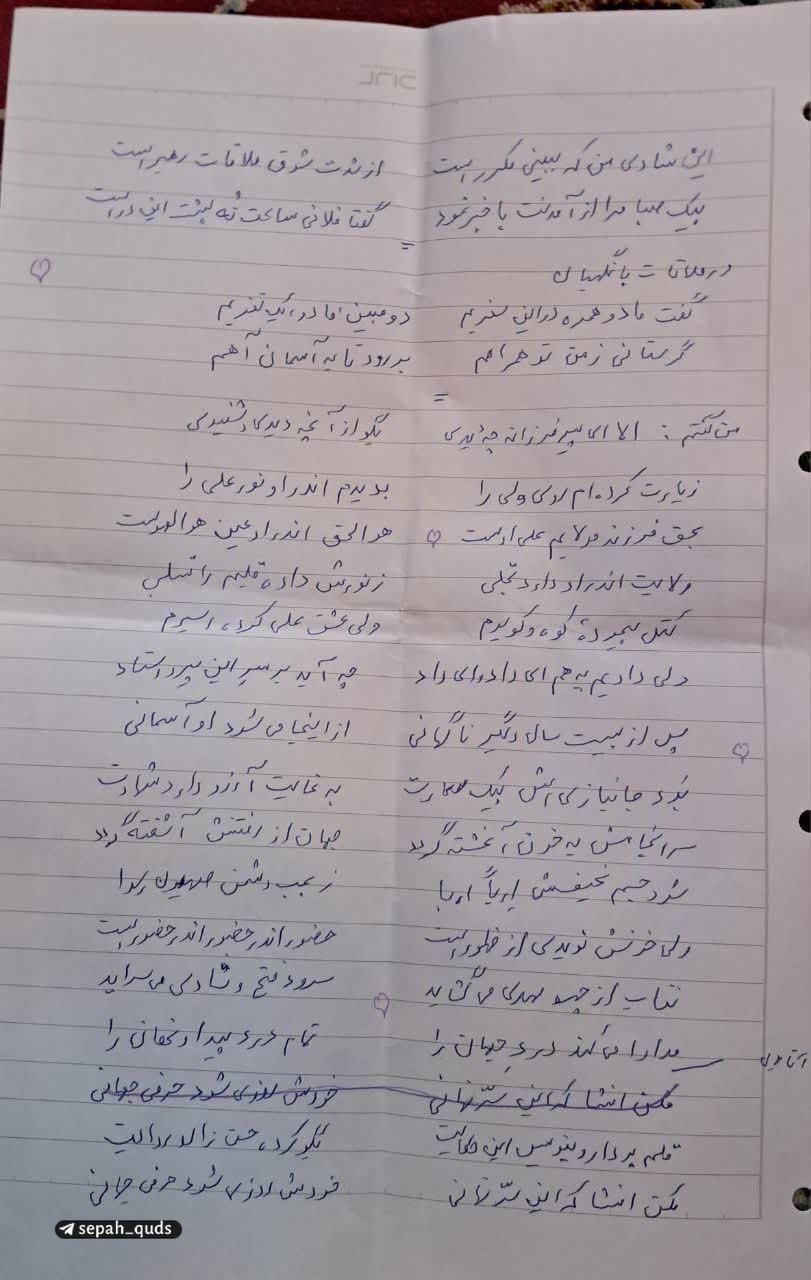 این شادی من که ببینی مکرر است از شدت شوق ملاقات رهبر است
پیک صبا مرا از آمدنت با خبر نمود گفتا فلانی ساعت نُه پشت این در است
=
در ملاقات با نگهبان
گفت ما دو همره در این سفریم دو مبین ما در یک نفریم
گرستانی ز من تو همراهم برود تا به آسمان آهم
=
من گفتم: الا ای پیر فرزانه چه دیدی بگو از آنچه دیدی و شنیدی
زیارت کرده‌ام روی ولی را بدیدم اندر او نور علی را
بحق فرزند مولایم علی اوست هو الحق اندر او عین هو الهوست
ولایت اندر او دارد تجلی ز نورش داده قلبم را تسلی
کتل پیموده کوه و کویرم ولی عشق علی کرده اسیرم
دلی دادیم به هم ای داد و ای داد چه آید بر سر این پیر استاد
پس از بیست سال دگر ناگهانی از اینجا می شود او آسمانی
بُوَد جانبازی اش یک به غایت آرزو دارد شهادت
سرانجامش به خون آغشته گردد جهان از رفتنش آشفته گردد
شود جسم نحیفش ارباً اربا ز بمب دشمن صهیون
ولی خونش نویدی از ظهور است حضور اندر حضور اندر حضور است
نقاب از چهره مهدی می گشاید سرود فتح و شادی می سراید
مداوا می کند درد جهان را تمام درد پیدا و نهان را
مکن افشا که این سرّ نهانی خودش روزی شود حرفی جهانی
قلم بردار و بنویس این حکایت نگو کرده حسن زالو روایت
مکن افشا که این سرّ نهانی خودش روزی شود حرفی جهانی
sepah_quds